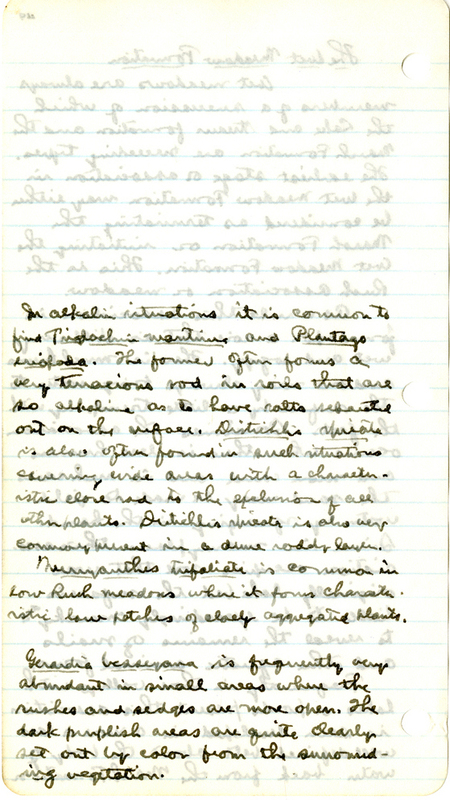 In alkalin situations it is common to
find Triglochin maritima and Plantago
eriopoda. The former often forms a
very tenacious sod in soils that are
so alkaline as to have salts separate
out on the surface. Distichlis spicata
is also often found in such situations
covering wide areas with a character-
istic close sod to the exclusion of all
other plants. Distichlis spicata is also very
commonly present in a dense soddy layer.
Menyanthes trifoliata is common in
low Rush meadows where it forms character-
istic low patches of closely aggregated plants.
Gerardia besseyana is frequently very
abundant in small areas where the
rushes and sedges are more open. The
dark purplish areas are quite clearly
set out by color from the surround-
ing vegetation.